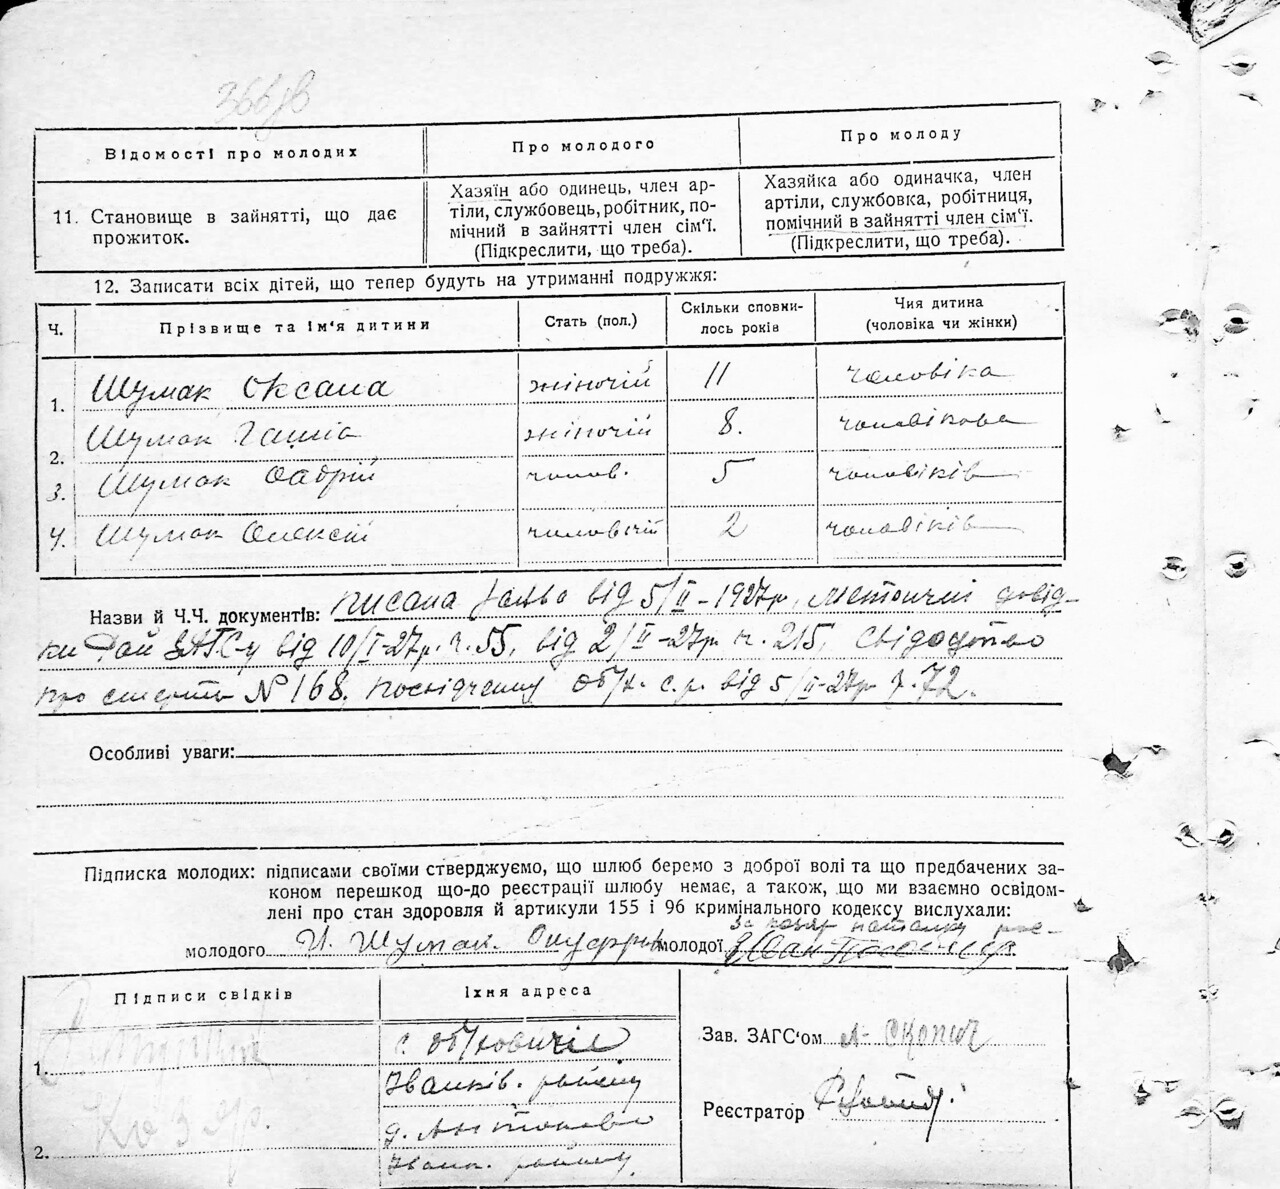 366зв
Відомості про молодих
Про молодого
Про молоду
11. Становище в зайнятті, що дає
прожиток.
Хазяїн або одинець, член ар-
тіли, службовець, робітник, по-
мічний в зайнятті член сім'ї.
(Підкреслити, що треба).
Хазяйка або одиначка, член
артіли, службовка, робітниця,
помічний в зайнятті член сім'ї.
(Підкреслити, що треба).
12. Записати всіх дітей, що тепер будуть на утриманні подружжя:
Ч.
Прізвище та ім'я дитини
Стать (пол.)
Скільки сповни-
лось років
Чия дитина
(чоловіка чи жінки)
1. Шумак Оксана жіночій 11 чоловіка
2. Шумак Ганна жіночій 8. чоловікова
3. Шумак чолов. 5 чоловіків
4. Шумак Олексій чоловічій 2 чоловіків
Назви й Ч.Ч. документів: писана заява від 5/II-1927р, метричні довід-
ки ЗАГС-у від 10/I-27р. ч. 55, від 2/II-27р ч. 215, свідоцтво
про смерть № 168, посвідчення с.р. від 5/II-27р ч. 72.
Особливі уваги:
Підписка молодих: підписами своїми стверджуємо, що шлюб беремо з доброї волі та що предбачених за-
коном перешкод що-до реєстрації шлюбу немає, а також, що ми взаємно освідом-
лені про стан здоровля й артикули 155 і 96 кримінального кодексу вислухали:
молодого И. Шумак. молодої
Підписи свідків
Їхня адреса
1.
с. Обуховичі
Іванків. району
2. Козяр.
с.
Іванк. району
Зав. ЗАГС'ом
Реєстратор